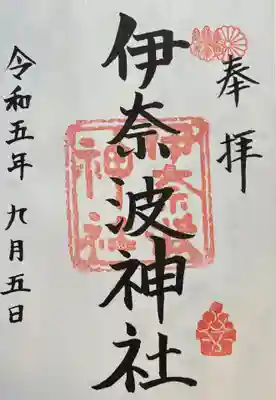 奉拝
伊奈波神社
伊奈波
神社
令和五年 九月五日